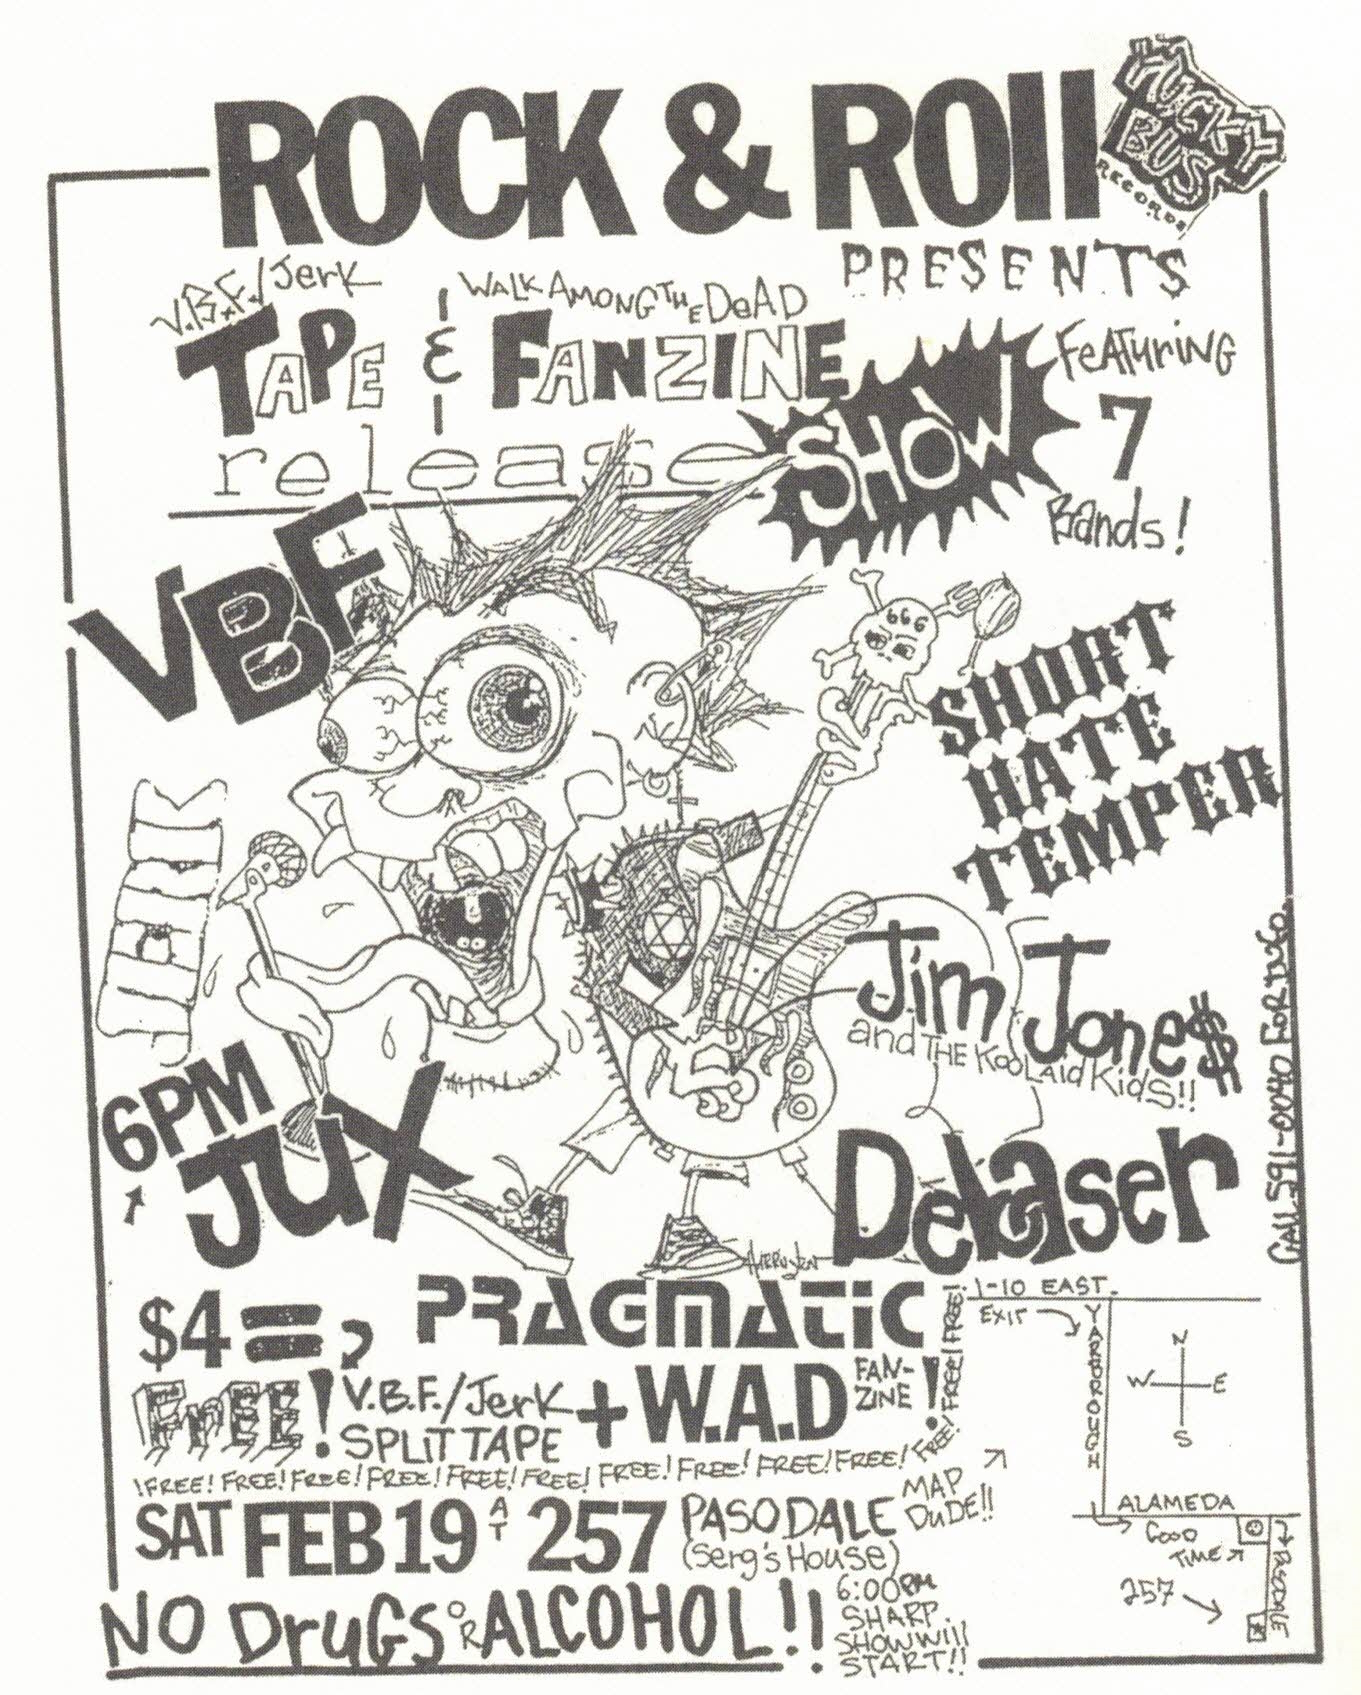 ROCK & ROll
YUCKY
BUS
RECORDS
PRESENTS
V.B.F./Jerk
TAPE & FANZINE
WALK AMONG THE DeAD
release
SHOW
FeATuriNG
7
Bands!
VBF
666
SHORT
HATE
TEMPER
JERK
Jim Jone$
and THE KooLAid KidS!!
6PM
JUX
Debaser
CALL 591-0040 FOR INFO.
PRAGMATiC
$4=
FREE! V.B.F./Jerk
SPLiT TAPE
+ W.A.D FAN-
ZINE!
!FREE! FREE! FREE! FREE! FREE! FREE! FREE! FREE! FREE! FREE! FREE! FREE! FREE! FREE!
SAT FEB 19 AT 257 PASODALE
(Serg's House)
NO DruGS OR ALCOHOL!!
6:00PM
SHARP.
SHOW Will
START!!
MAP
DuDE!!
I-10 EAST.
EXIT
YARBROUGH
N
W E
S
ALAMEDA
GOOD
TIME
257
PASODALE